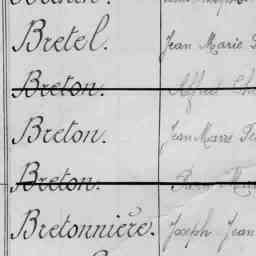 Bretel. Jean Marie
Breton. Alfred
Breton. Jean Marie
Breton.
Bretonnière. Joseph Jean